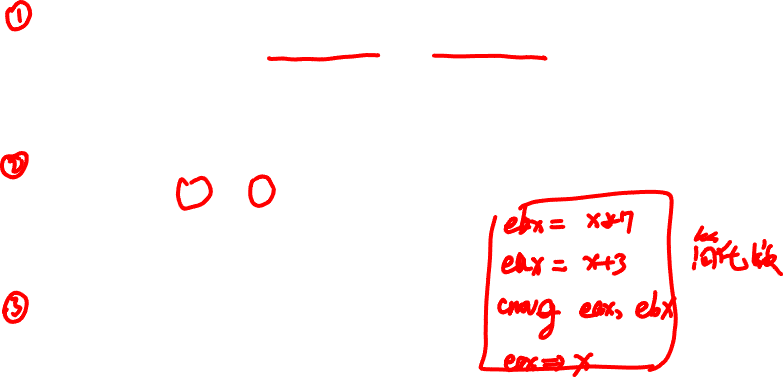 ①
②
③
ebx = x*7
eax = x+3
cmovg eax, ebx
eax ⇒ x